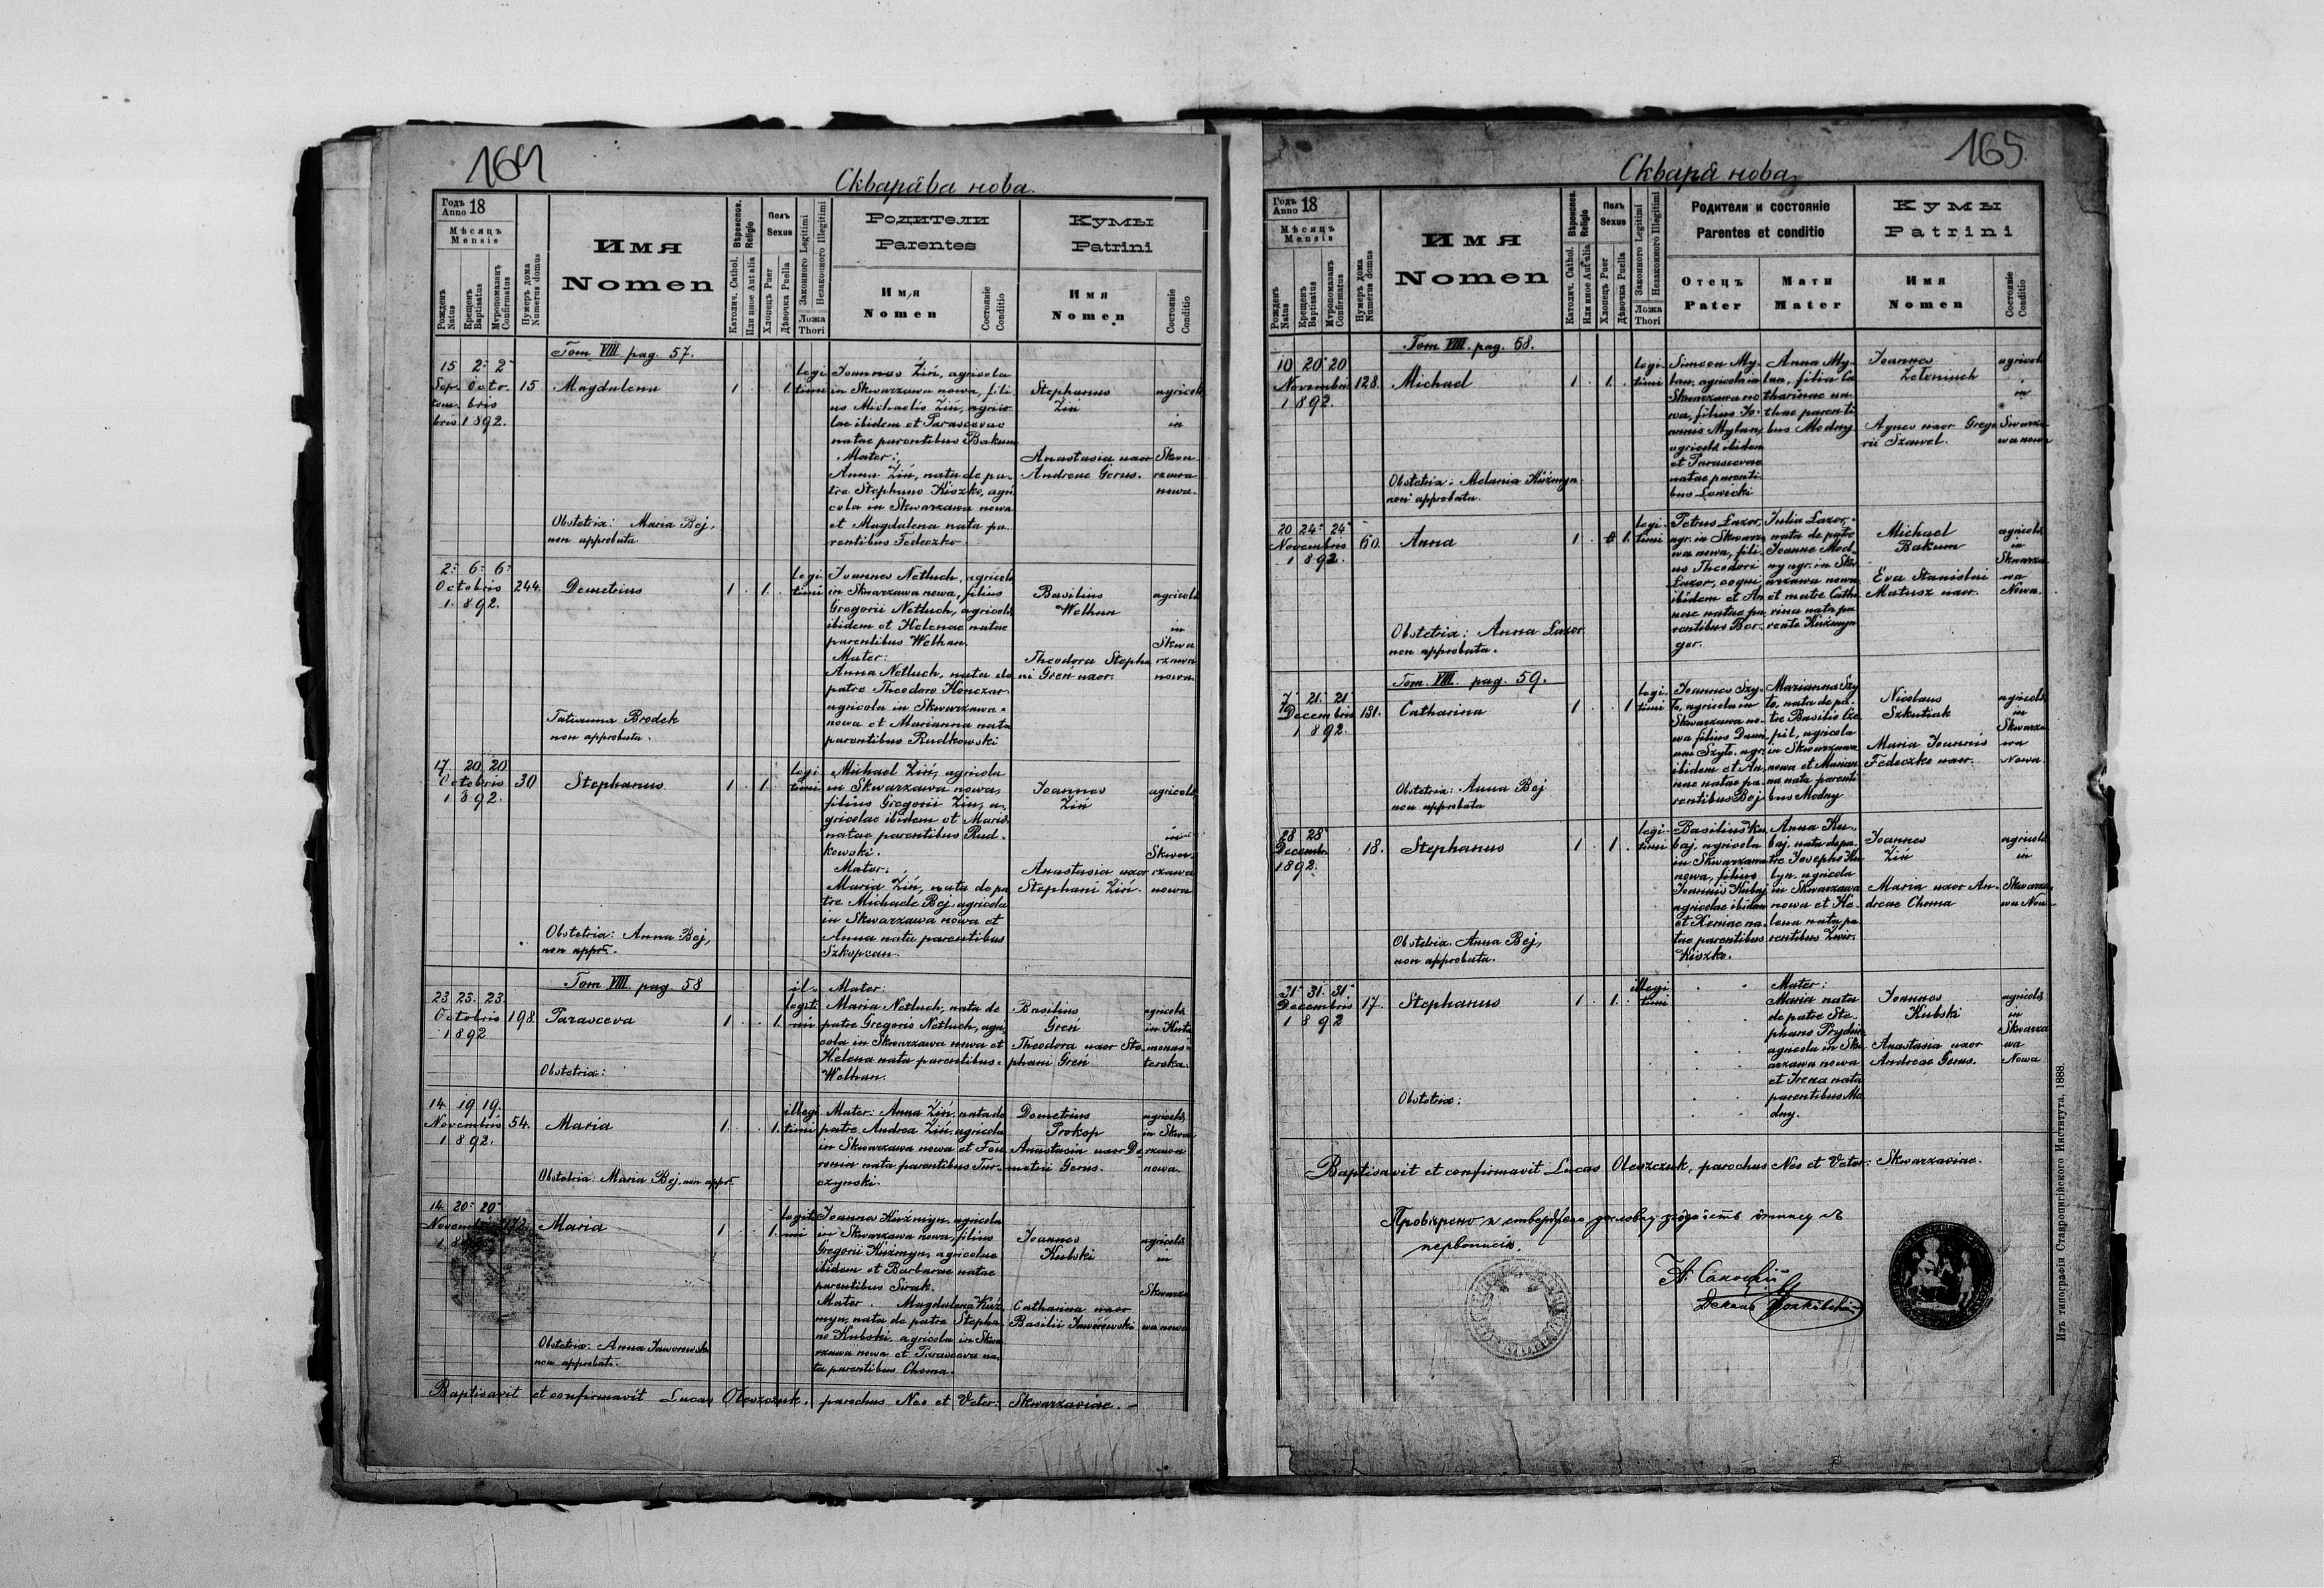 164
Скварѣва нова.
Годъ Anno 18
Мѣсяцъ Mensis
Рожденъ Natus
Крещенъ Baptisatus
Мѵропомазанъ Confirmatus
Нумеръ дома Numerus domus
Имя
Nomen
Вѣроисповѣд. Religio
Католич. Cathol.
Или иное Aut alia
Полъ Sexus
Хлопецъ Puer
Дѣвочка Puella
Законного Legitimi
Незаконного Illegitimi
Ложа Thori
Родители
Parentes
Имя
Nomen
Состояніе Conditio
Кумы
Patrini
Имя
Nomen
Состояніе Conditio
Tom VIII. pag. 57.
15 2 2
Septembris Octobris 1892.
15
Magdalena
1 . . 1.
legitimi
Joannes Ziń, agricola
in Skwarzawa nowa, fili-
us Michaelis Ziń, agrico-
lae ibidem et Parascevae
natae parentibus Bakum
Mater:
Anna Ziń, nata de pa-
tre Stephano Kiszko, agri
cola in Skwarzawa nowa
et Magdalena nata pa-
rentibus Fedeczko
Stephanus
Ziń
Anastasia uxor
Andreae Gerus.
agricola
in
Skwa-
rzawa
nowa
Obstetrix: Maria Bej,
non approbata
2 6 6
Octobris
1892.
244.
Demetrius
1 . 1.
legitimi
Joannes Netluch, agricola
in Skwarzawa nowa, filius
Gregorii Netluch, agricola
ibidem et Helenae natae
parentibus Welhan.
Mater:
Anna Netluch, nata de
patre Theodoro Konczar
agricola in Skwarzawa
nowa et Marianna nata
parentibus Rudkowski
Basilius
Welhan
Theodora Stepha
ni Greń uxor.
agricola
in
Skwa
rzawa
nowa
Tatianna Brodek
non approbata.
17 20 20
Octobris
1892.
30
Stephanus
1 . 1.
legitimi
Michael Ziń, agricola
in Skwarzawa nowa,
filius Gregorii Ziń, a-
gricolae ibidem et Maria
natae parentibus Rud-
kowski.
Mater:
Maria Ziń, nata de pa
tre Michaele Bej, agricola
in Skwarzawa nowa et
Anna nata parentibus
Szkopcan.
Joannes
Ziń
Anastasia uxor
Stephani Ziń.
agricola
in
Skwa-
rzawa
nowa
Obstetrix: Anna Bej,
non appr.
Tom VIII. pag. 58
23. 23. 23.
Octobris
1892
198.
Parasceva
1 . . 1.
illegitimi
Mater:
Maria Netluch, nata de
patre Gregorio Netluch, agri
cola in Skwarzawa nowa et
Helena nata parentibus
Welhan.
Basilius
Greń
Theodora uxor Ste
phani Greń
agricola
Obstetrix:
14. 19 19.
Novembris
1892.
54.
Maria
1. . . 1.
illegitimi
Mater: Anna Ziń, nata de
patre Andrea Ziń, agricola
in Skwarzawa nowa et Feu
ronia nata parentibus Tur-
czynski.
Demetrius
Prokop
Anastasia uxor De
metrii Gerus.
agricola
in Skwa
rzawa
nowa
Obstetrix: Maria Bej, non appr.
14. 20 20
Novembris 172.
Maria
1 . . 1.
legitimi
Joannes Kuźmyn, agricola
in Skwarzawa nowa, filius
Gregorii Kuźmyn, agricolae
ibidem et Barbarae natae
parentibus Sirak.
Mater. Magdalena Kuź
myn, nata de patre Stepha
no Kubski, agricola in Skwa
rzawa nowa et Parasceva na
ta parentibus Choma.
Joannes
Kubski
Catharina uxor
Basilii Jaworowski
agricola
in
Skwarza
wa nowa
Obstetrix: Anna Jaworowska
non approbata.
Baptisavit et confirmavit Lucas Oleszczuk, parochus Neo et Veter. Skwarzaviae.
165
Скварѣ нова.
Годъ Anno 18
Мѣсяцъ Mensis
Рожденъ Natus
Крещенъ Baptisatus
Мѵропомазанъ Confirmatus
Нумеръ дома Numerus domus
Имя
Nomen
Вѣроисповѣд. Religio
Католич. Cathol.
Или иное Aut alia
Полъ Sexus
Хлопецъ Puer
Дѣвочка Puella
Законного Legitimi
Незаконного Illegitimi
Ложа Thori
Родители и состояніе
Parentes et conditio
Отецъ
Pater
Мати
Mater
Кумы
Patrini
Имя
Nomen
Состояніе Conditio
Tom VIII. pag. 58.
10 20 20
Novembris
1892.
128.
Michael
1 . 1.
legitimi
Simeon My-
lan, agricola in
Skwarzawa no
wa, filius Jo-
annis Mylan,
agricolae ibidem
et Parascevae
natae parenti
bus Lowicki
Anna My-
lan, filia Ca
tharinae na-
tae parenti
bus Modny.
Joannes
Agnes uxor Grego
rii Szawel.
agricola
in
Swarza
wa nowa
Obstetrix: Melania Kuźmyn
non approbata.
20 24 24
Novembris
1892.
60.
Anna
1 . . 1.
legitimi
Petrus Lazor,
agr. in Skwarza
wa nowa, fili-
us Theodori
Lazor,
ibidem et An
nae natae pa
rentibus Ber-
ger.
Julia Lazor,
nata de patre
Joanne Mod-
ny agr. in Skw
arzawa nowa
et matre Catha
rina nata pa
rente Kuźmyn
Michael
Bakum
Eva Stanislai
Matusz uxor.
agricola
in
Skwarza
wa
Nowa.
Obstetrix: Anna Lazor
non approbata.
Tom. VIII. pag. 59.
7. 21. 21
Decembris
1892.
131.
Catharina
1 . . 1
legitimi
Joannes Szy-
to, agricola in
Skwarzawa no-
wa filius Dami-
ani Szyto, agr.
ibidem et An
nae natae pa-
rentibus Bej
Marianna Szy
to, nata de pa-
tre Basilio Cze
pil, agricola
in Skwarzawa
nowa et Marian
na nata parenti
bus Modny
Nicolaus
Szkutiak
Maria Joannis
Fedeczko uxor.
agricola
in
Skwarza
wa
Nowa
Obstetrix: Anna Bej
non approbata
28 28
Decembr.
1892.
18.
Stephanus
1 . 1.
legitimi
Basilius Ku
baj, agricola
in Skwarzawa
nowa, filius
Joannis Kubaj
agricolae ibidem
et Xeniae na-
tae parentibus
Kiszko.
Anna Ku-
baj, nata de pa-
tre Josepho Ku
lyn, agricola
in Skwarzawa
nowa et He-
lena nata pa-
rentibus
Joannes
Ziń
Maria uxor An-
dreae Choma
agricola
in
Skwarza
wa Nowa
Obstetrix: Anna Bej,
non approbata.
31 31. 31
Decembris
1892
17.
Stephanus
1 . 1.
illegitimi
Mater:
Maria nata
de patre Ste-
phano
agricola in Skw
arzawa nowa
et Irena nata
parentibus Mo
dny.
Joannes
Kubski
Anastasia uxor
Andreae Gerus.
agricola
in
Skwarza
wa
Nowa
Obstetrix:
Baptisavit et confirmavit Lucas Oleszczuk, parochus Neo et Veter. Skwarzaviae.
Изъ типографіи Ставропигійского Института, 1888.